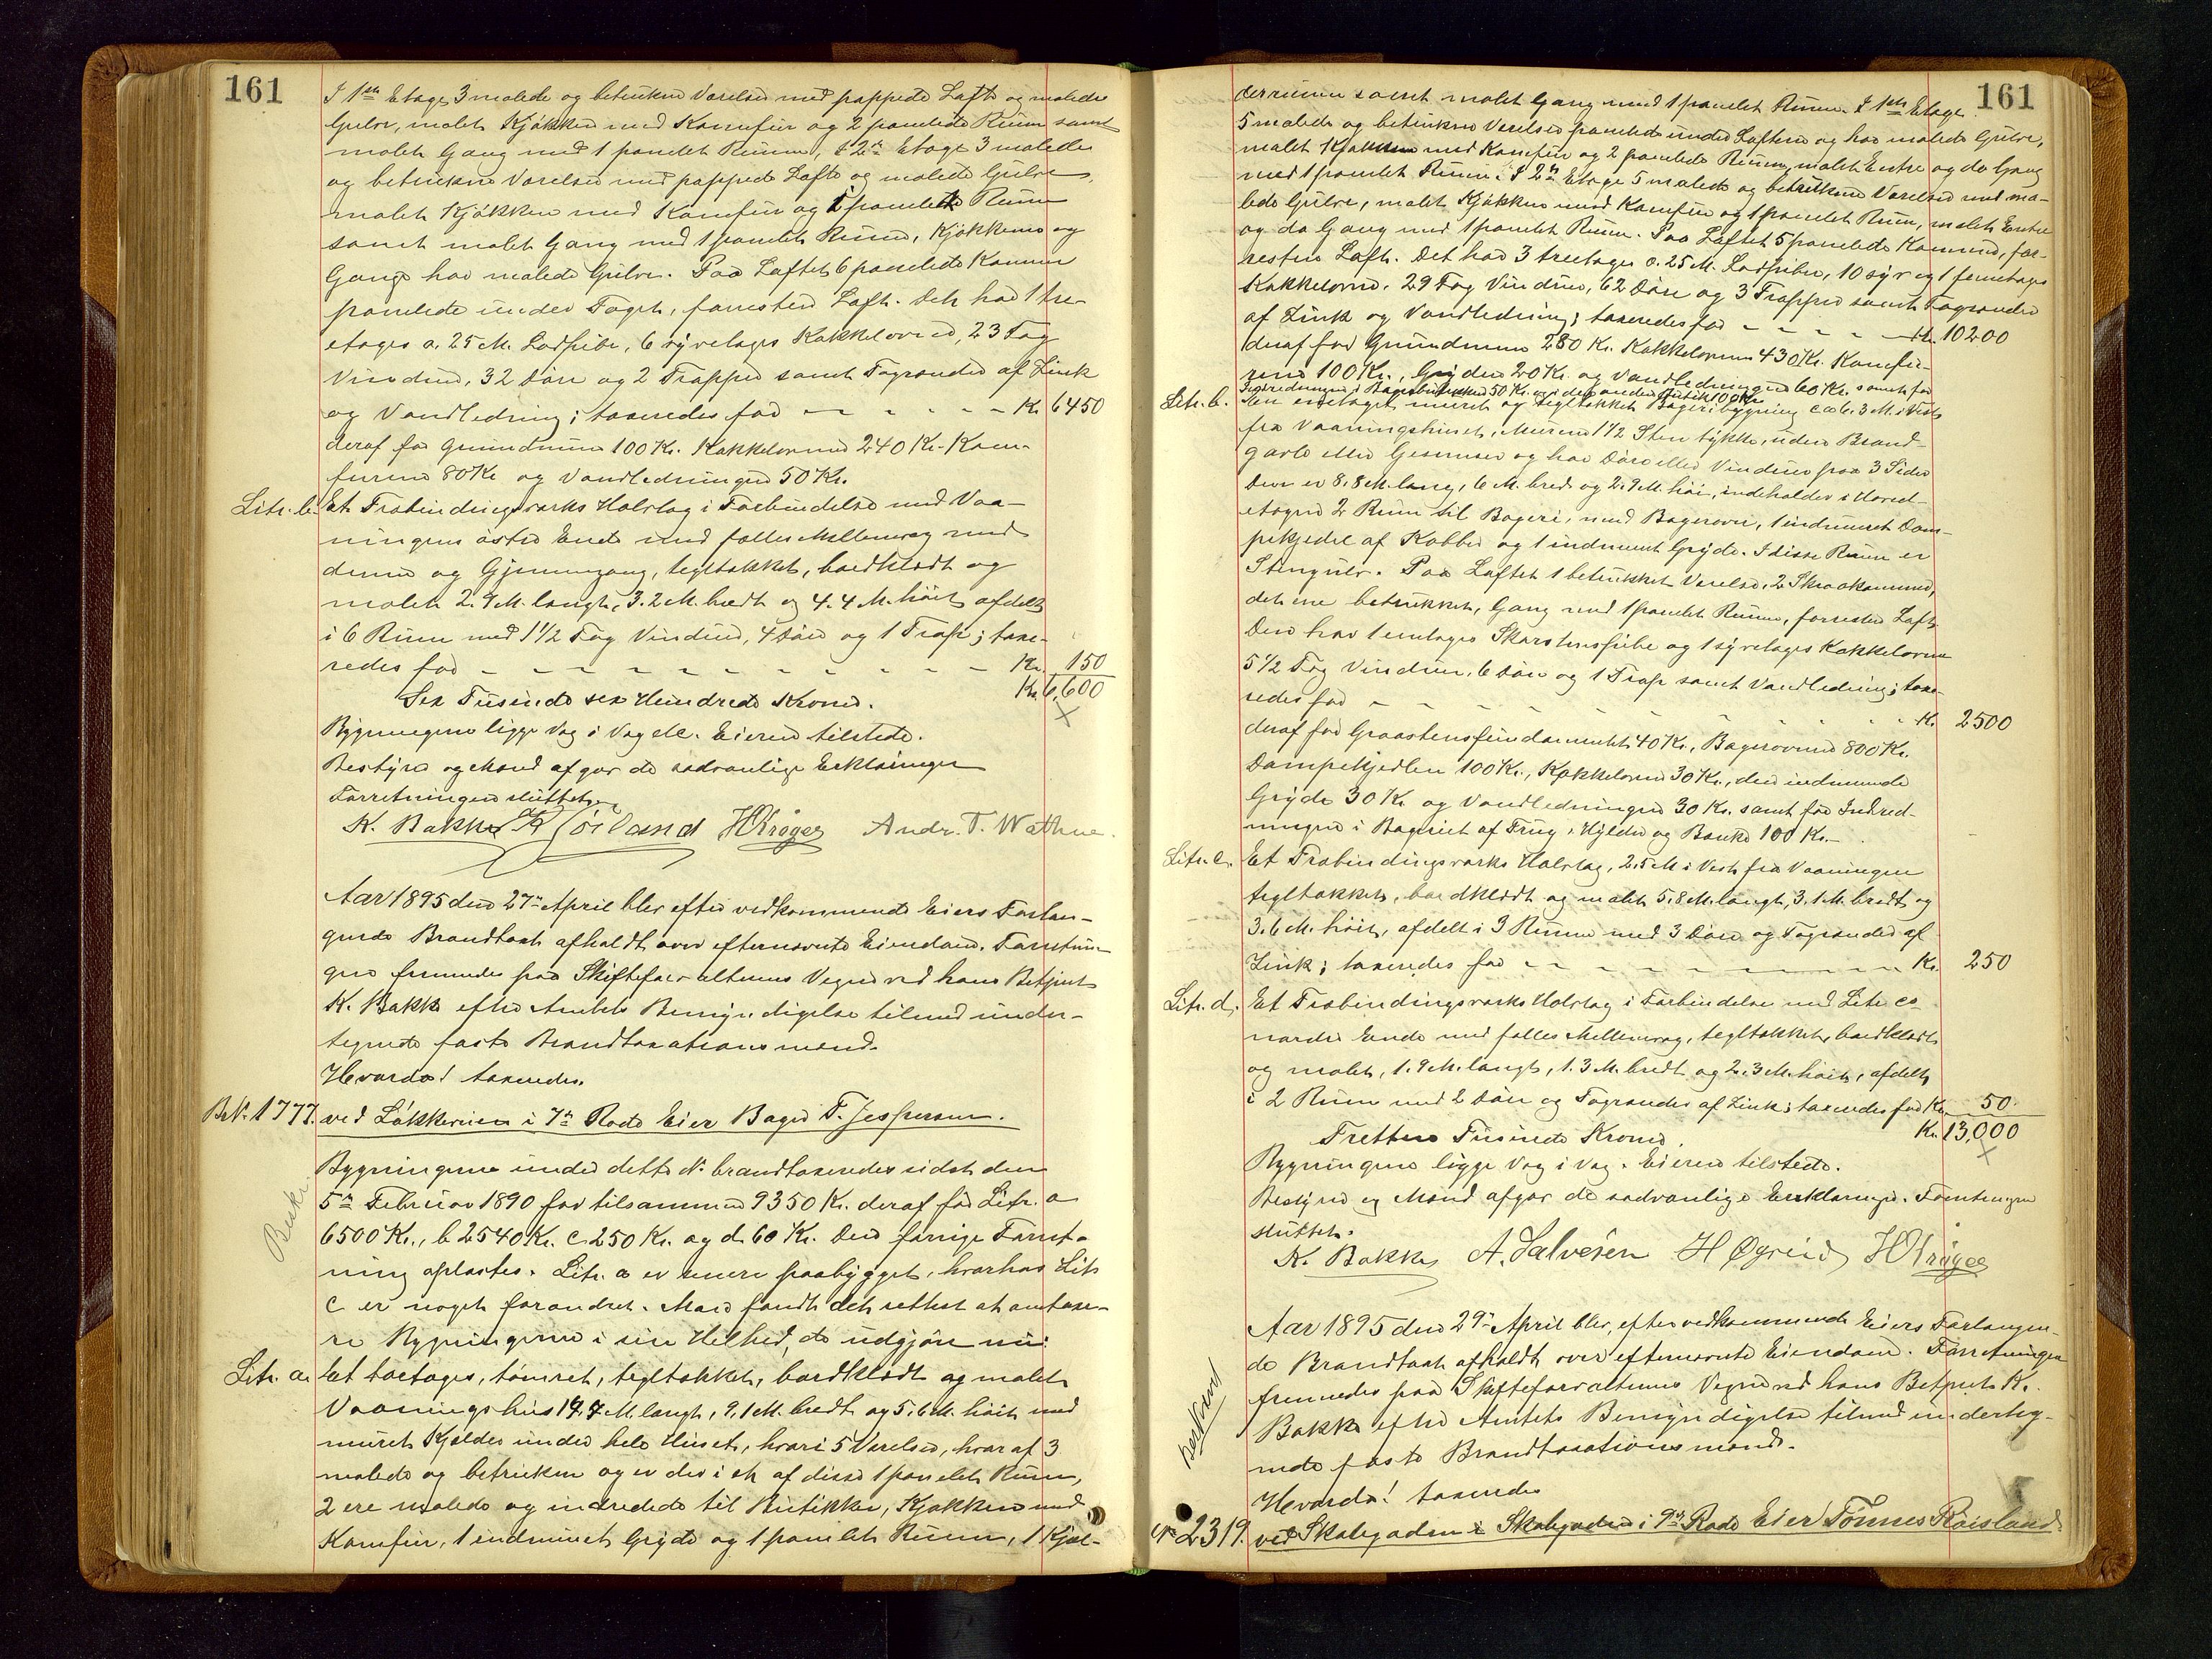 161
I 1ste Etage 3 malede og betrukne Værelser med pappede Lofte og malede
Gulve, malet Kjøkken med Komfur og 2 panelede Rum samt
malet Gang med 1 panelet Rum, I 2n Etage 3 malede
og betrukne Værelser med pappede Lofte og malede Gulve,
malet Kjøkken med Komfur og 1 panelet Rum
samt malet Gang med 1 panelet Rum, Kjøkkener og
Gange har malede Gulve. Paa Loftet 6 panelede Kammer
panelede under Taget, forresten Loft. Det har 1 tre-
etages a. 25 M. Lodpibe, 6 syvetages Kakkelovne, 23 Fag
Vinduer, 32 Døre og 2 Trapper samt Tagrender af Zink
og Vandledning; taxeredes for - - - - - Kr. 6450
deraf for Grundmuren 100 Kr. Kakkelovnene 240 Kr. Kom-
furene 80 Kr og Vandledningen 50 Kr.
Litr. b. Et Trebindingsværks Halvtag i Forbindelse med Vaa-
ningens østre Ende med fælles Mellemvæg med
denne og Gjennemgang, tegltækket, bordklædt og
malet 2.9 M. langt, 3.2 M. bredt og 4.4 M. høit afdelt
i 6 Rum med 1 1/2 Fag Vinduer, 4 Døre og 1 Trap; taxe-
redes for - - - - - - - - - - - Kr. 150
Kr. 6,600
Sex Tusinde sex Hundrede Kroner.
Bygningerne ligge Væg i Væg etc. Eieren tilstede.
Bestyrer og Mænd afgav de sædvanlige Erklæringer
Forretningen sluttet.
K. Bakke Høiland HKrøger Andr. T. Wathne.
Aar 1895 den 27n April blev efter vedkommende Eiers Forlan-
gende Brandtaxt afholdt over efternævnte Eiendom. Forretnin-
gen fremmedes paa Skifteforvalterens Vegne ved hans Betjent
K. Bakke efter Amtets Bemyndigelse tilmed under-
tegnede faste Brandtaxationsmænd.
Hvorda! taxeredes.
Br.No. 1777. ved Løkkeveien i 7n Rode Eier Bager T. Jespersen.
Beskr.
Bygningerne under dette No. brandtaxeredes sidst den
5n Februar 1890 for tilsammen 9350 Kr. deraf for Litr. a
6500 Kr., b 2540 Kr. c 250 Kr. og d 60 Kr. Den forrige Forret-
ning oplæstes. Litr. a er senere paabygget, hvorhos Litr
c er noget forandret. Man fandt det rettest at omtaxe-
re Bygningerne i sin Helhed, de udgjøre nu:
Litr. a. Et toetages, tømret, tegltækket, bordklædt og malet
Vaaningshus 19,7 M. langt, 9,1 M. bredt og 5,6 M. høit med
muret Kjælder under hele Huset, hvori 5 Værelser, hvoraf 3
malede og betrukne og er der i et af disse 1 panelet Rum,
2 ere malede og indredede til Butikker, Kjøkken med
Komfur, 1 indmuret Gryde og 1 panelet Rum, 1 Kjæl-
161
derrum samt malet Gang med 1 panelet Rum. I 1ste Etage
5 malede og betrukne Værelser panelede under Loftene og har malede Gulve,
malet Kjøkken med Komfur og 2 panelede Rum, malet Entre og do Gang
med 1 panelet Rum. I 2n Etage 5 malede og betrukne Værelser med ma-
lede Gulve, malet Kjøkken med Komfur og 1 panelet Rum, malet Entre
og do Gang med 1 panelet Rum. Paa Loftet 5 panelede Kammer, for-
resten Loft. Det har 3 treetages a. 25 M. Lodpiber, 10 syv og 1 femetages
Kakkelovne, 29 Fag Vinduer, 62 Døre og 3 Trapper samt Tagrender
af Zink og Vandledning; taxeredes for - - - - - Kr. 10200
deraf for Grundmuren 280 Kr. Kakkelovnene 430 Kr. Komfu-
rene 100 Kr., Gryden 20 Kr. og Vandledningen 60 Kr. samt for
Indredningen i Bagerbutikken 50 Kr. og i den anden Butik 100 Kr.
Litr. b. Een enetages muret og tegltækket Bageribygning ca 6.3 M. i Vest
fra Vaaningshuset, Murene 1 1/2 Sten tykke, uden Brand-
gavle eller Gesimser og har Døre eller Vinduer paa 3 Sider
Den er 8.8 M. lang, 6 M. bred og 2.9 M. høi, indeholder i Hoved-
etagen 2 Rum til Bageri, med Bagerovn, 1 indmuret Dam-
pekjedel af Kobber og 1 indmuret Gryde. I disse Rum er
Stengulv. Paa Loftet 1 betrukket Værelse, 2 Skraakammer,
det ene betrukket, Gang med 1 panelet Rum, forresten Loft
Den har 1 enetages Skorstenspibe og 1 syvetages Kakkelovn
5 1/2 Fag Vinduer, 6 Døre og 1 Trap samt Vandledning; taxe-
redes for - - - - - - - - Kr. 2500
deraf for Graastensfundamentet 40 Kr., Bagerovnen 800 Kr.
Dampekjedlen 100 Kr., Kakkelovnen 30 Kr., den indmurede
Gryde 30 Kr. og Vandledningen 30 Kr. samt for Indred-
ningen i Bageriet af Trug, Hylder og Bænke 100 Kr.
Litr. c. Et Trebindingsværks Halvtag, 2.5 M. i Vest fra Vaaningen
tegltækket, bordklædt og malet 5.8 M. langt, 3.1 M. bredt og
3.6 M. høit, afdelt i 3 Rum med 3 Døre og Tagrender af
Zink; taxeredes for - - - - - - - Kr. 250
Litr. d. Et Trebindingsværks Halvtag i Forbindelse med Litr c's
nordre Ende med fælles Mellemvæg, tegltækket, bordklædt
og malet, 1.9 M. langt, 1.3 M. bredt og 2.3 M. høit, afdelt
i 2 Rum med 2 Døre og Tagrender af Zink; taxeredes for Kr. 50
Kr. 13,000
Tretten Tusinde Kroner.
Bygningerne ligge Væg i Væg. Eieren tilstede.
Bestyrer og Mænd afgav de sædvanlige Erklæringer. Forretningen
sluttet.
K. Bakke A. Salvesen H Øgreid HKrøger
Aar 1895 den 29n April blev, efter vedkommende Eiers Forlangen-
de Brandtaxt afholdt over efternævnte Eiendom. Forretningen
fremmedes paa Skifteforvalterens Vegne ved hans Betjent K.
Bakke efter Amtets Bemyndigelse tilmed underteg-
nede faste Brandtaxationsmænd.
Hvorda! taxeredes
No 2319. ved Skolegaden i Skolegaden i 9n Rode Eier Tönnes Röisland